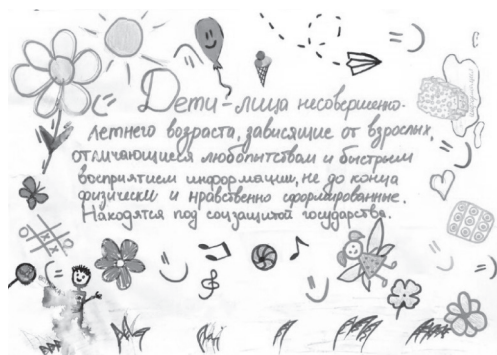 Дети – лица несовершенно-
летнего возраста, зависящие от взрослых,
отличающиеся любопытством и быстрым
восприятием информации, не до конца
физически и нравственно сформированные.
Находятся под соцзащитой государства.